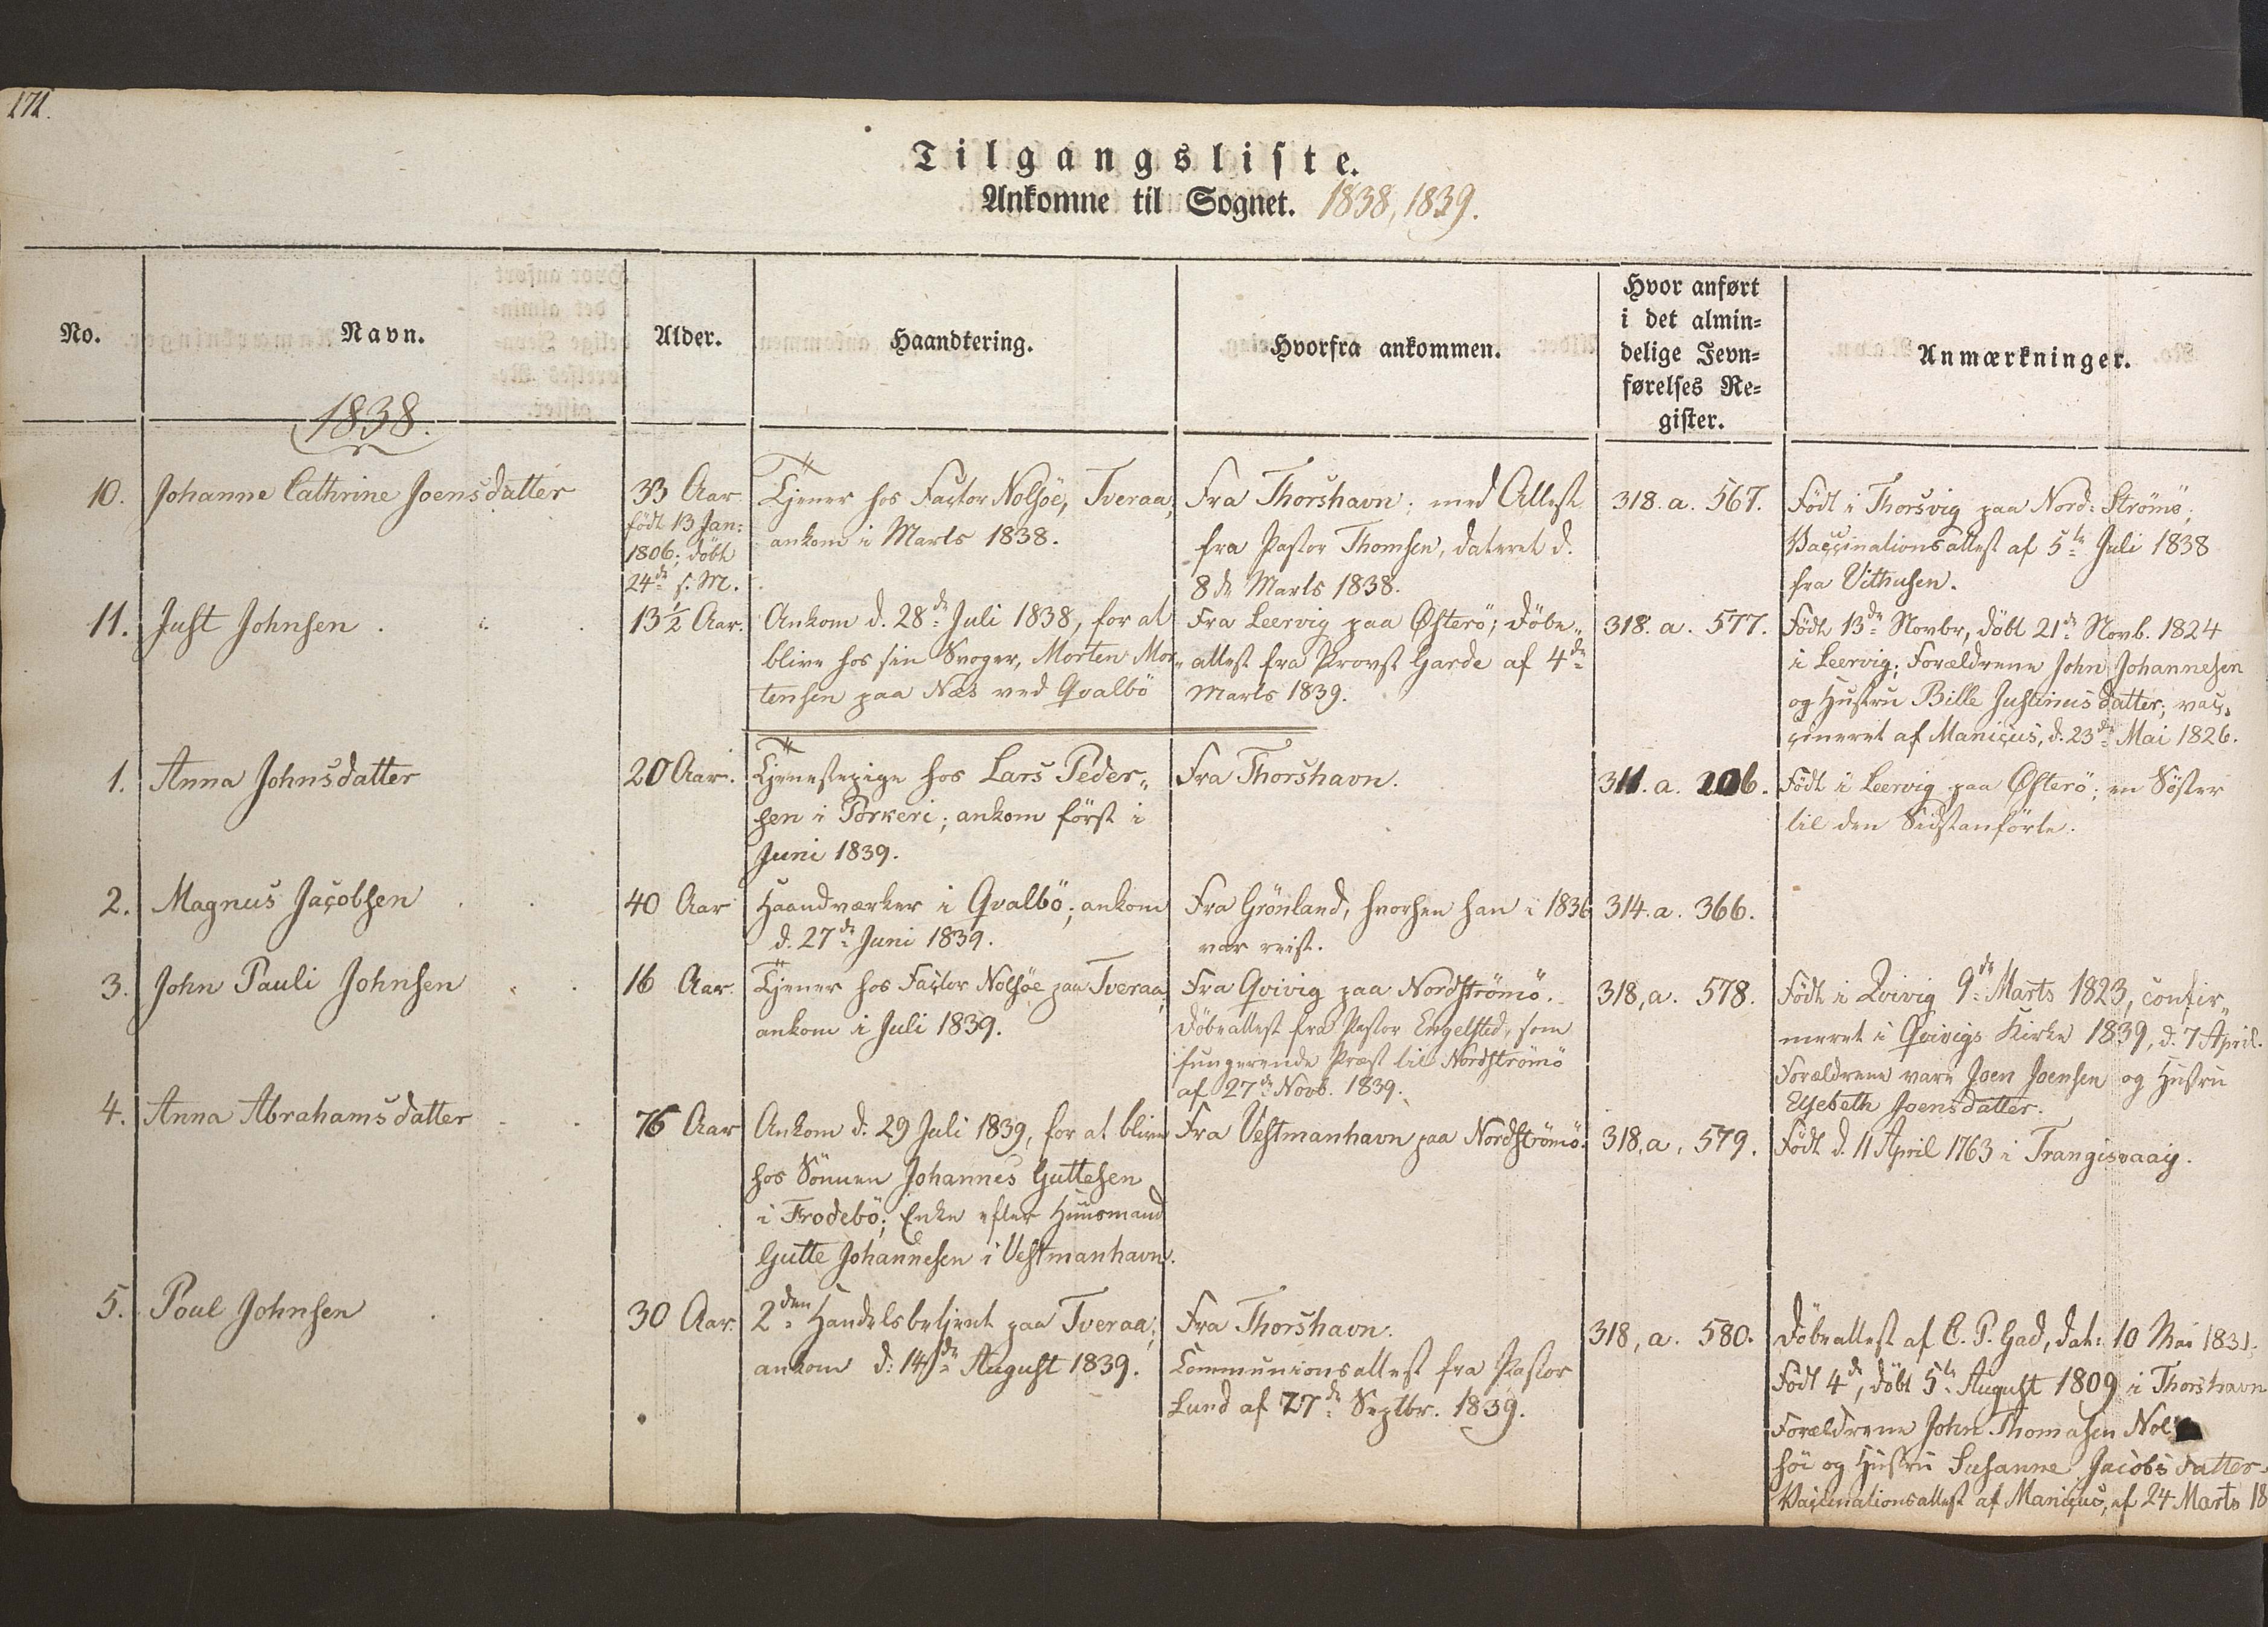 171.
Tilgangsliste.
Ankomne til Sognet. 1838, 1839.
No.
Navn.
Alder.
Haandtering.
Hvorfra ankommen.
Hvor anført
i det almin=
delige Jevn=
førelses Re=
gister.
Anmærkninger.
1838.
10.
Johanne Cathrine Joensdatter
33 Aar
født 13 Jan:
1806; døbt
24de s. M.
Tjener hos Factor Nolsöe, Tveraa,
ankom i Marts 1838.
Fra Thorshavn; med Attest
fra Pastor Thomsen, dateret d.
8de Marts 1838.
318. a. 567.
Født i Thorsvig paa Nord-Strömö;
Vaccinationsattest af 5te Juli 1838
fra Vithusen.
11.
Just Johnsen
13½ Aar.
Ankom d. 28de Juli 1838, for at
blive hos sin Svoger, Morten Mor„
tensen paa Næs ved Qvalbö
Fra Leervig paa Østerö; Döbe„
attest fra Provst Garde af 4de
Marts 1839.
318. a. 577.
Födt 13de Novbr, döbt 21de Novb. 1824
i Leervig; Forældrene John Johannesen
og Hustru Bille Justinusdatter; vac„
cineret af Manicus, d. 23de Mai 1826.
1.
Anna Johnsdatter
20 Aar.
Tjenestepige hos Lars Peder„
sen i Porkeri; ankom först i
Juni 1839.
Fra Thorshavn.
311. a. 206.
Födt i Leervig paa Østerö; en Söster
til den Sidstanförte.
2.
Magnus Jacobsen
40 Aar
Haandværker i Qvalbö; ankom
d. 27de Juni 1839.
Fra Grönland, hvorhen han i 1836
var reist.
314. a. 366.
3.
John Pauli Johnsen
16 Aar.
Tjener hos Factor Nolsöe paa Tveraa,
ankom i Juli 1839.
Fra Qvivig paa Nordströmö.
Döbeattest fra Pastor Engelsted, som
fungerende Præst til Nordströmö
af 27de Novb. 1839.
318, a. 578.
Födt i Qvivig 9de Marts 1823, confir„
meret i Qvivigs Kirke 1839, d. 7 April.
Forældrene vare Joen Joensen og Hustru
Elsebeth Joensdatter.
4.
Anna Abrahamsdatter
76 Aar
Ankom d. 29 Juli 1839, for at blive
hos Sönnen Johannes Guttesen
i Frodebö; Enke efter Huusmand
Gutte Johannesen i Vestmanhavn.
Fra Vestmanhavn paa Nordströmö.
318, a. 579.
Födt d. 11 April 1763 i Trangisvaag.
5.
Poul Johnsen
30 Aar.
2den Handelsbetjent paa Tveraa;
ankom d: 14de August 1839.
Fra Thorshavn.
Communionsattest fra Pastor
Lund af 27de Septbr. 1839.
318, a. 580.
Döbeattest af C. P. Gad, dat: 10 Mai 1831.
Födt 4de, döbt 5te August 1809 i Thorshavn
Forældrene John Thomasen Nol
söe og Hustru Susanne Jacobsdatter.
Vaccinationsattest af Manicus, af 24 Marts 18